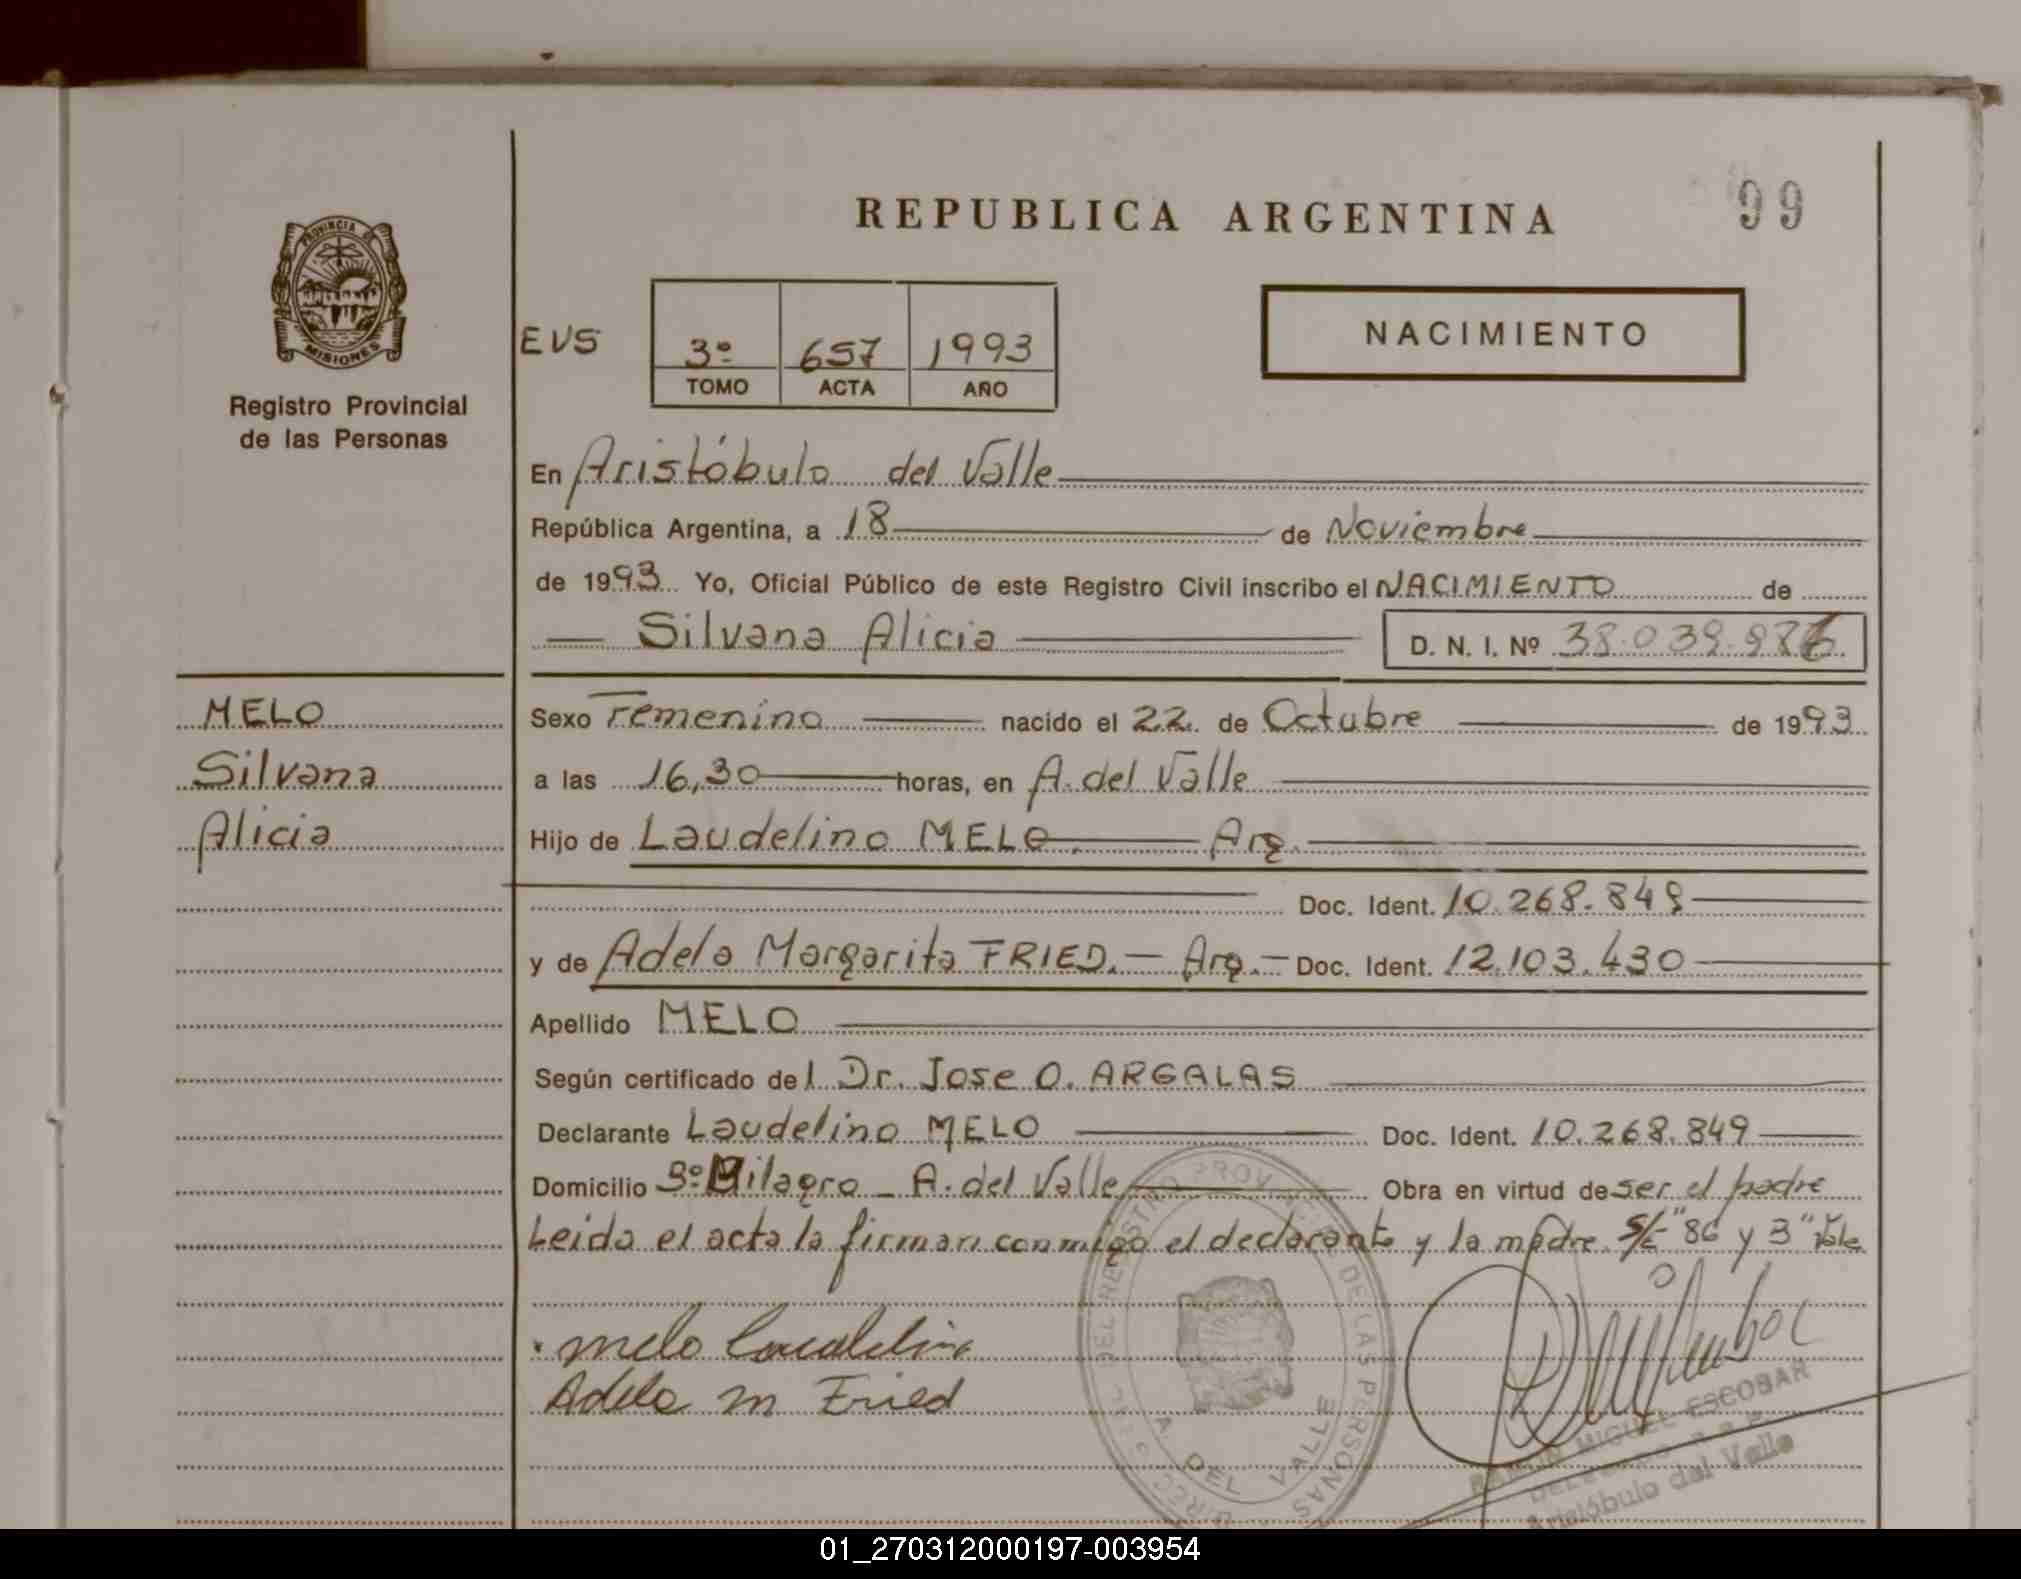 REPUBLICA ARGENTINA
99
PROVINCIA DE
MISIONES
Registro Provincial
de las Personas
EVS
3º 657 1993
TOMO ACTA AÑO
NACIMIENTO
En Aristóbulo del Valle
República Argentina, a 18 de Noviembre
de 1993 Yo, Oficial Público de este Registro Civil inscribo el NACIMIENTO de
Silvana Alicia D. N. I. Nº
MELO
Silvana
Alicia
Sexo Femenino nacido el 22 de Octubre de 1993
a las 16,30 horas, en A. del Valle
Hijo de Laudelino MELO. Arg.
Doc. Ident. 10.268.849
y de Adela Margarita FRIED. Arg. Doc. Ident. 12.103.430
Apellido MELO
Según certificado del Dr. Jose O. ARGALAS
Declarante Laudelino MELO Doc. Ident. 10.268.849
Domicilio Milagro A. del Valle Obra en virtud de ser el padre
Leida el acta la firman conmigo el declarante y la madre. "86 y 3" Vale
melo
Adela m Fried
DIREC. GRAL. DEL REGISTRO PROVINCIAL DE LAS PERSONAS
A. DEL VALLE
RAMON MIGUEL ESCOBAR
Aristóbulo del Valle
01_270312000197-003954